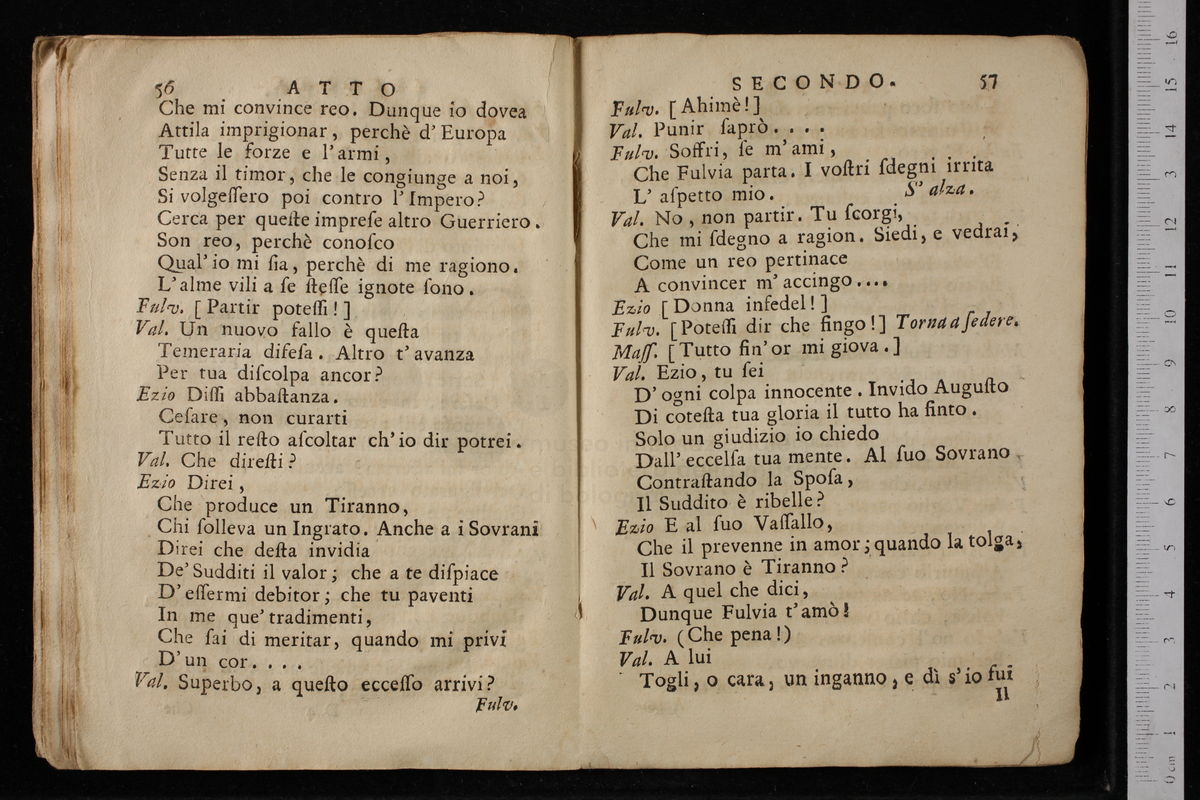 56 ATTO
Che mi convince reo. Dunque io dovea
Attila imprigionar, perchè d'Europa
Tutte le forze e l'armi,
Senza il timor, che le congiunge a noi,
Si volgeſſero poi contro l'Impero?
Cerca per queſte impreſe altro Guerriero.
Son reo, perchè conoſco
Qual' io mi ſia, perchè di me ragiono.
L'alme vili a ſe ſteſſe ignote ſono.
Fulv. [Partir poteſſi!]
Val. Un nuovo fallo è queſta
Temeraria difeſa. Altro t'avanza
Per tua diſcolpa ancor?
Ezio Diſſi abbaſtanza.
Ceſare, non curarti
Tutto il reſto aſcoltar ch'io dir potrei.
Val. Che direſti?
Ezio Direi,
Che produce un Tiranno,
Chi ſolleva un Ingrato. Anche a i Sovrani
Direi che deſta invidia
De' Sudditi il valor; che a te diſpiace
D'eſſermi debitor; che tu paventi
In me que' tradimenti,
Che ſai di meritar, quando mi privi
D'un cor....
Val. Superbo, a queſto ecceſſo arrivi?
Fulv.
SECONDO. 57
Fulv. [Ahimè!]
Val. Punir ſaprò....
Fulv. Soffri, ſe m'ami,
Che Fulvia parta. I voſtri ſdegni irrita
L' aſpetto mio. S' alza.
Val. No, non partir. Tu ſcorgi,
Che mi ſdegno a ragion. Siedi, e vedrai,
Come un reo pertinace
A convincer m' accingo....
Ezio [Donna infedel!]
Fulv. [Poteſſi dir che fingo!] Torna a ſedere.
Maſſ. [Tutto fin' or mi giova.]
Val. Ezio, tu ſei
D' ogni colpa innocente. Invido Auguſto
Di coteſta tua gloria il tutto ha finto.
Solo un giudizio io chiedo
Dall' eccelſa tua mente. Al ſuo Sovrano
Contraſtando la Spoſa,
Il Suddito è ribelle?
Ezio E al ſuo Vaſſallo,
Che il prevenne in amor; quando la tolga,
Il Sovrano è Tiranno?
Val. A quel che dici,
Dunque Fulvia t'amò!
Fulv. (Che pena!)
Val. A lui
Togli, o cara, un inganno, e dì s'io fui
Il